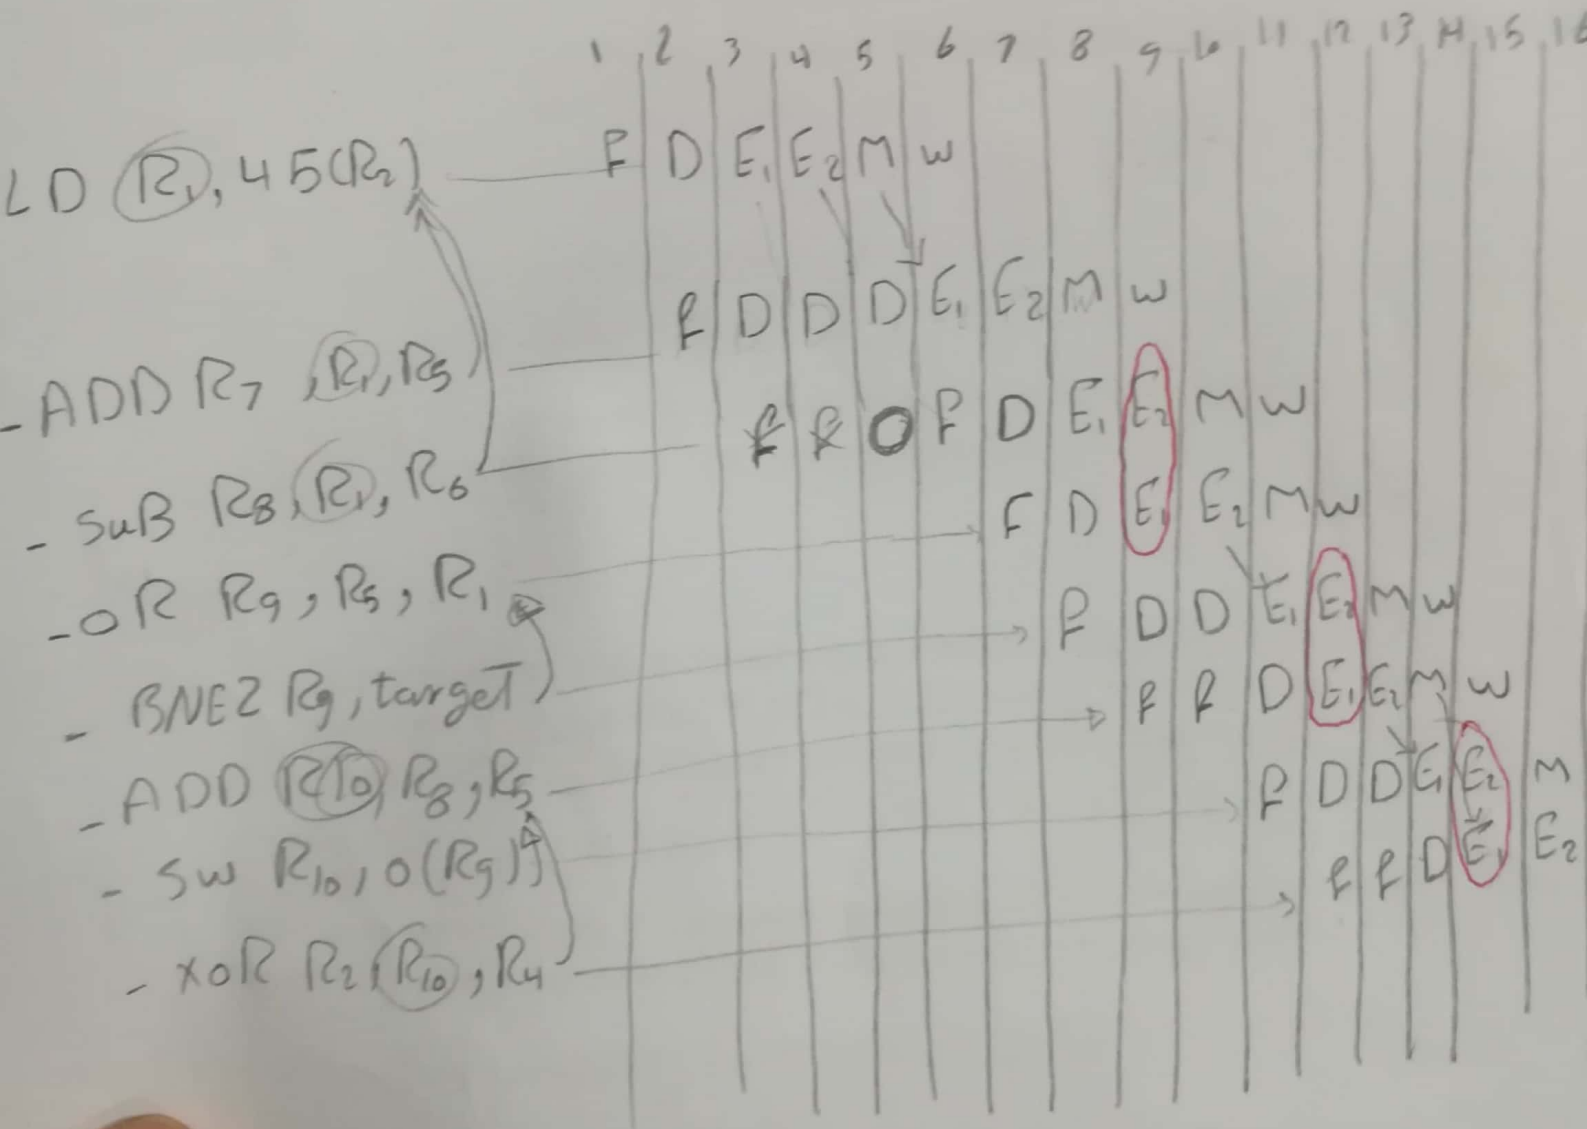 1 2 3 4 5 6 7 8 9 10 11 12 13 14 15 16
LD R1, 45(R2) F D E1 E2 M W
- ADD R7, R1, R5 F D D D E1 E2 M W
- SUB R8, R1, R6 F F O F D E1 E2 M W
- OR R9, R5, R1 F D E1 E2 M W
- BNEZ R9, target F D D E1 E2 M W
- ADD R10, R8, R5 F F D E1 E2 M W
- SW R10, 0(R9) F D D E1 E2 M
- XOR R2, R10, R4 F F D E1 E2